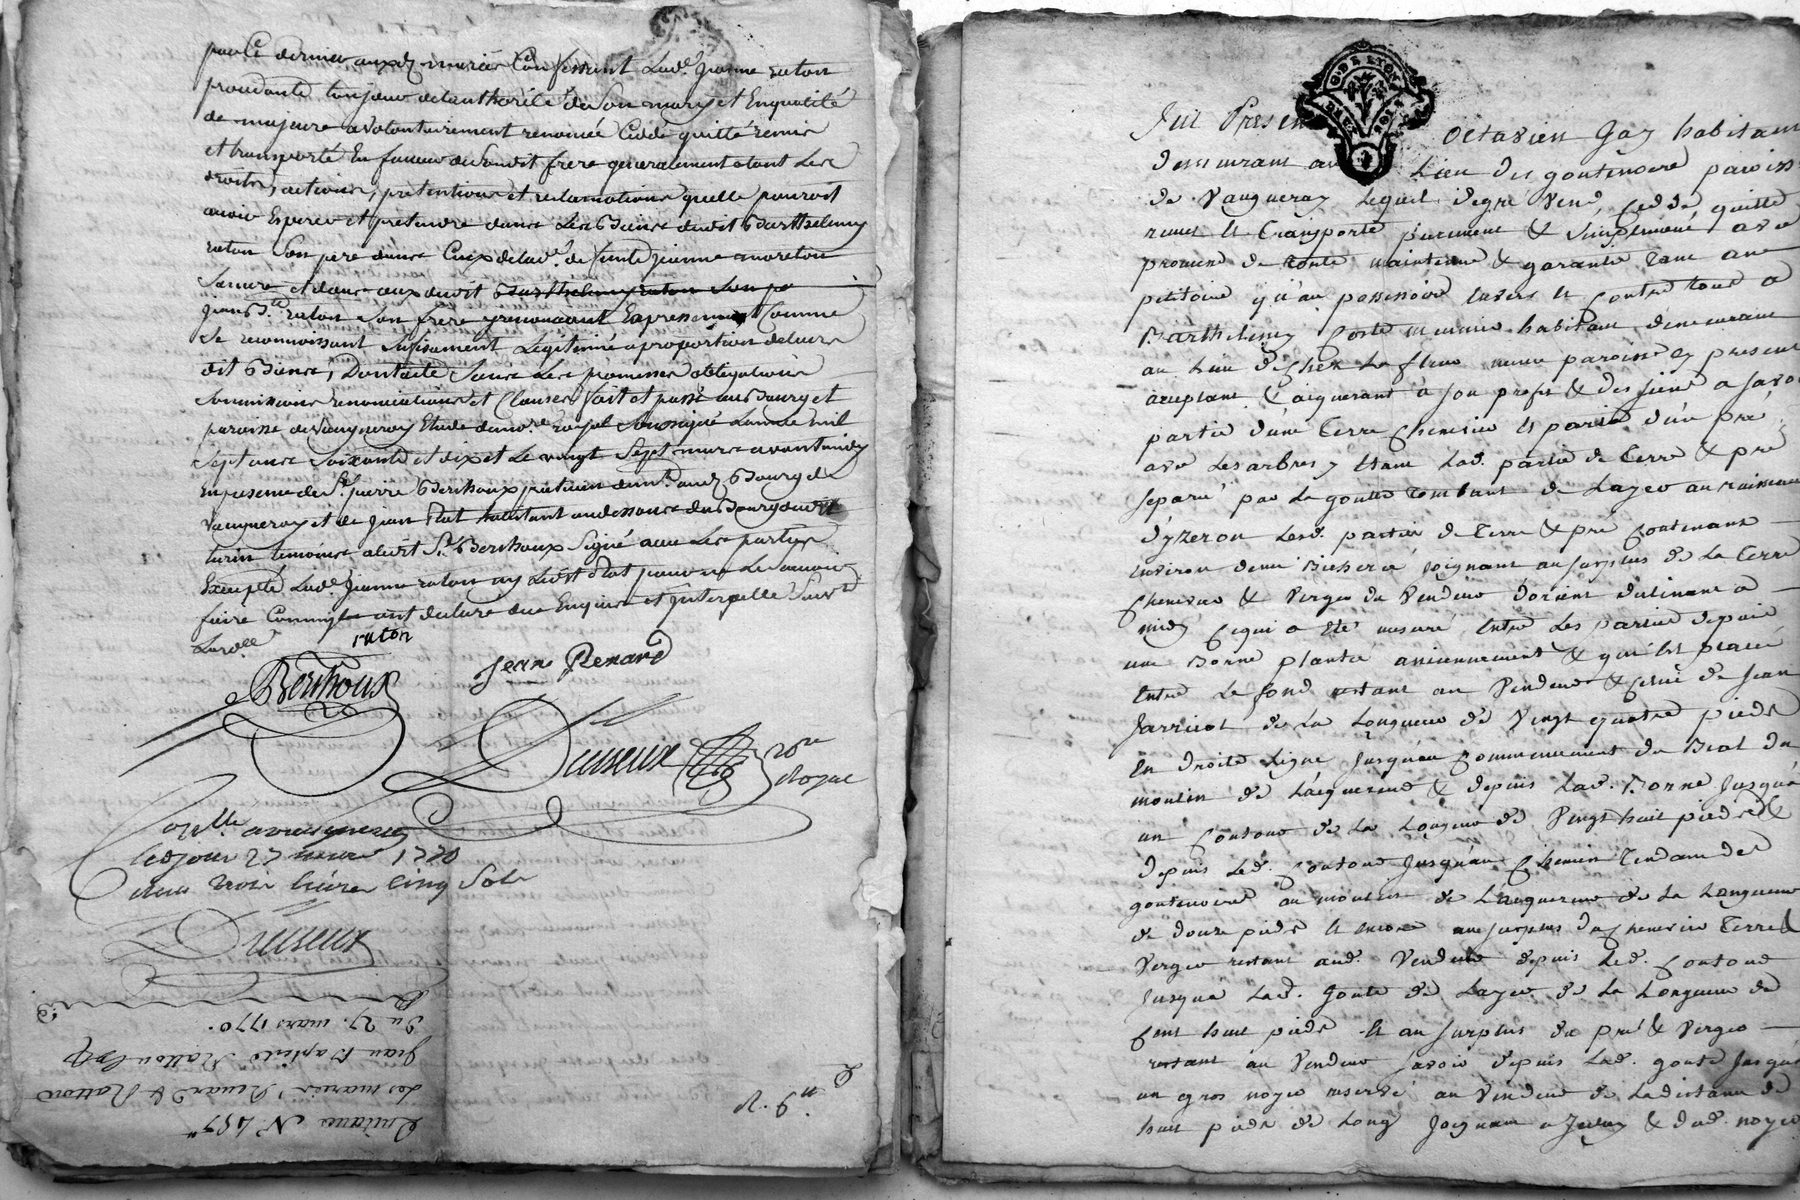 par ce dernier auxd. mariés Confessant Lad.e Jeanne raton
procedante toujour de l'authorité de Son mary et En qualité
de majeure a volontairement renoncée Cedé quitté remis
et transporté En faveur de Sondit frere generalement tout Les
droits, actions, pretentions et reclamations quelle pourroit
avoir Esperer et pretendre dans Les Biens dudit Barthelemy
raton Son pere dans Ceux de lad.e de funte Jeanne
Sa mere et dans ceux dudit Barthelemy raton Son pe
Jean B.te raton Son frere y renoncant Expressement Comme
Se reconnoissant Sufisament Legitimé a proportion de leurs
dit Biens, Dont acte Sous Les promesses obligations
Soumissions renonciations et Clauses fait et passé au Bourg et
paroisse de Vaugneray Etude du no.re royal Soussigné L'an mil
Sept cens Soixante et dix et Le vingt Sept mars avant midy
En presence de S.r pierre Berthoux praticien dem.t aud. Bourg de
Vaugneray et de Jean Plat habitant au dessous du Bourg
temoins Ledit S.r Berthoux Signé avec Les parties
Excepté Lad.e Jeanne raton ny Led.t Plat pour ne Le Savoir
faire Comme ont declaré de ce Enquis et Interpellé Suivt
raton
Berthoux
Jean Renard
Dreseux
no.re
Royal
Con.lle a vaugneray
led jour 27 mars 1770
recu trois livres Cinq Sols
Dreseux
Du 27. mars 1770.
Jean Baptiste Ratton
Les mariés Renard & Ratton
Quittance N.o
G. DE LYON
Fut Present Octavien Gay habitant
demeurant au Lieu des goutenoire paroiss
de Vaugneray Lequel degré Vend, Cedde quitte
remet et transporte purement & Simplement, ave
promesse de toute maintenue & garantie tant au
petitoire qu'au possessoire Envers et Contre tous a
Barthelemy Coste meunier habitant demeurant
au Lieu de chez La fleur meme paroisse cy present
acceptant & aiquerant a son profit & des siens a savo
partie d'une Terre Cheneviere et partie d'un pré
ave Les arbres y Etant Lad. partie de Terre & pré
separé par La goutte tombant de Layer au ruisseau
d'yzeron Lesd. parties de Terre & pré Contenant
Environ demi Bicheré joignant au surplus de La Terre
Cheneviere & Verger du Vendeur d'orient declinant a
midy Ce qui a Eté mesuré Entre Les parties depuis
une Borne plantée anciennement & qui Est placée
Entre Le fond restant au Vendeur & Celui de Jean
Jarricot de La Longueur de Vingt quatre pieds
En droite Ligne Jusqu'au Commencement du Bial du
moulin de L'aiquereur & depuis Lad. Borne Jusqu'a
un Contour de La Longueur de Vingt huit pieds &
depuis Led. Contour Jusqu'au Chemin Tendant des
goutenoire au moulin de L'aiquereur de La Longueur
de douze pieds Et encore au surplus de Cheneviere Terre &
Verger restant aud. Vendeur depuis Led. Contour
Jusqu'a Lad. Goute de Layer de La Longueur de
Cent huit pieds Et au surplus du pré & Verger
restant au Vendeur savoir depuis Lad. goute Jusqu'a
un gros noyer reservé au Vendeur de La distance de
huit pieds de Long Joignant a & dud. noyer